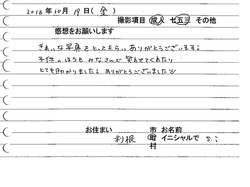 2018年10月19日(金)
撮影項目 成人 七五三 その他
感想をお願いします
きれいな写真をとってもらい ありがとうございます!
子供のほうも みなさんで 笑わせてくれたり
とても助かりました! ありがとうございました
お住まい 市町村 お名前
利根 イニシャルで